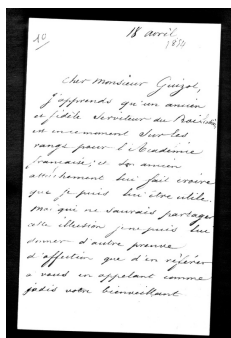 10
18 avril
1850
Cher Monsieur Guizot,
J'apprends qu'un ancien
et fidèle Serviteur du Roi
est en ce moment sur les
rangs pour l'Académie
française; et son ancien
attachement lui fait croire
que je puis lui être utile.
Moi qui ne saurais partager
cette illusion je ne puis lui
donner d'autre preuve
d'affection que d'en référer
à vous en appelant comme
jadis votre bienveillant